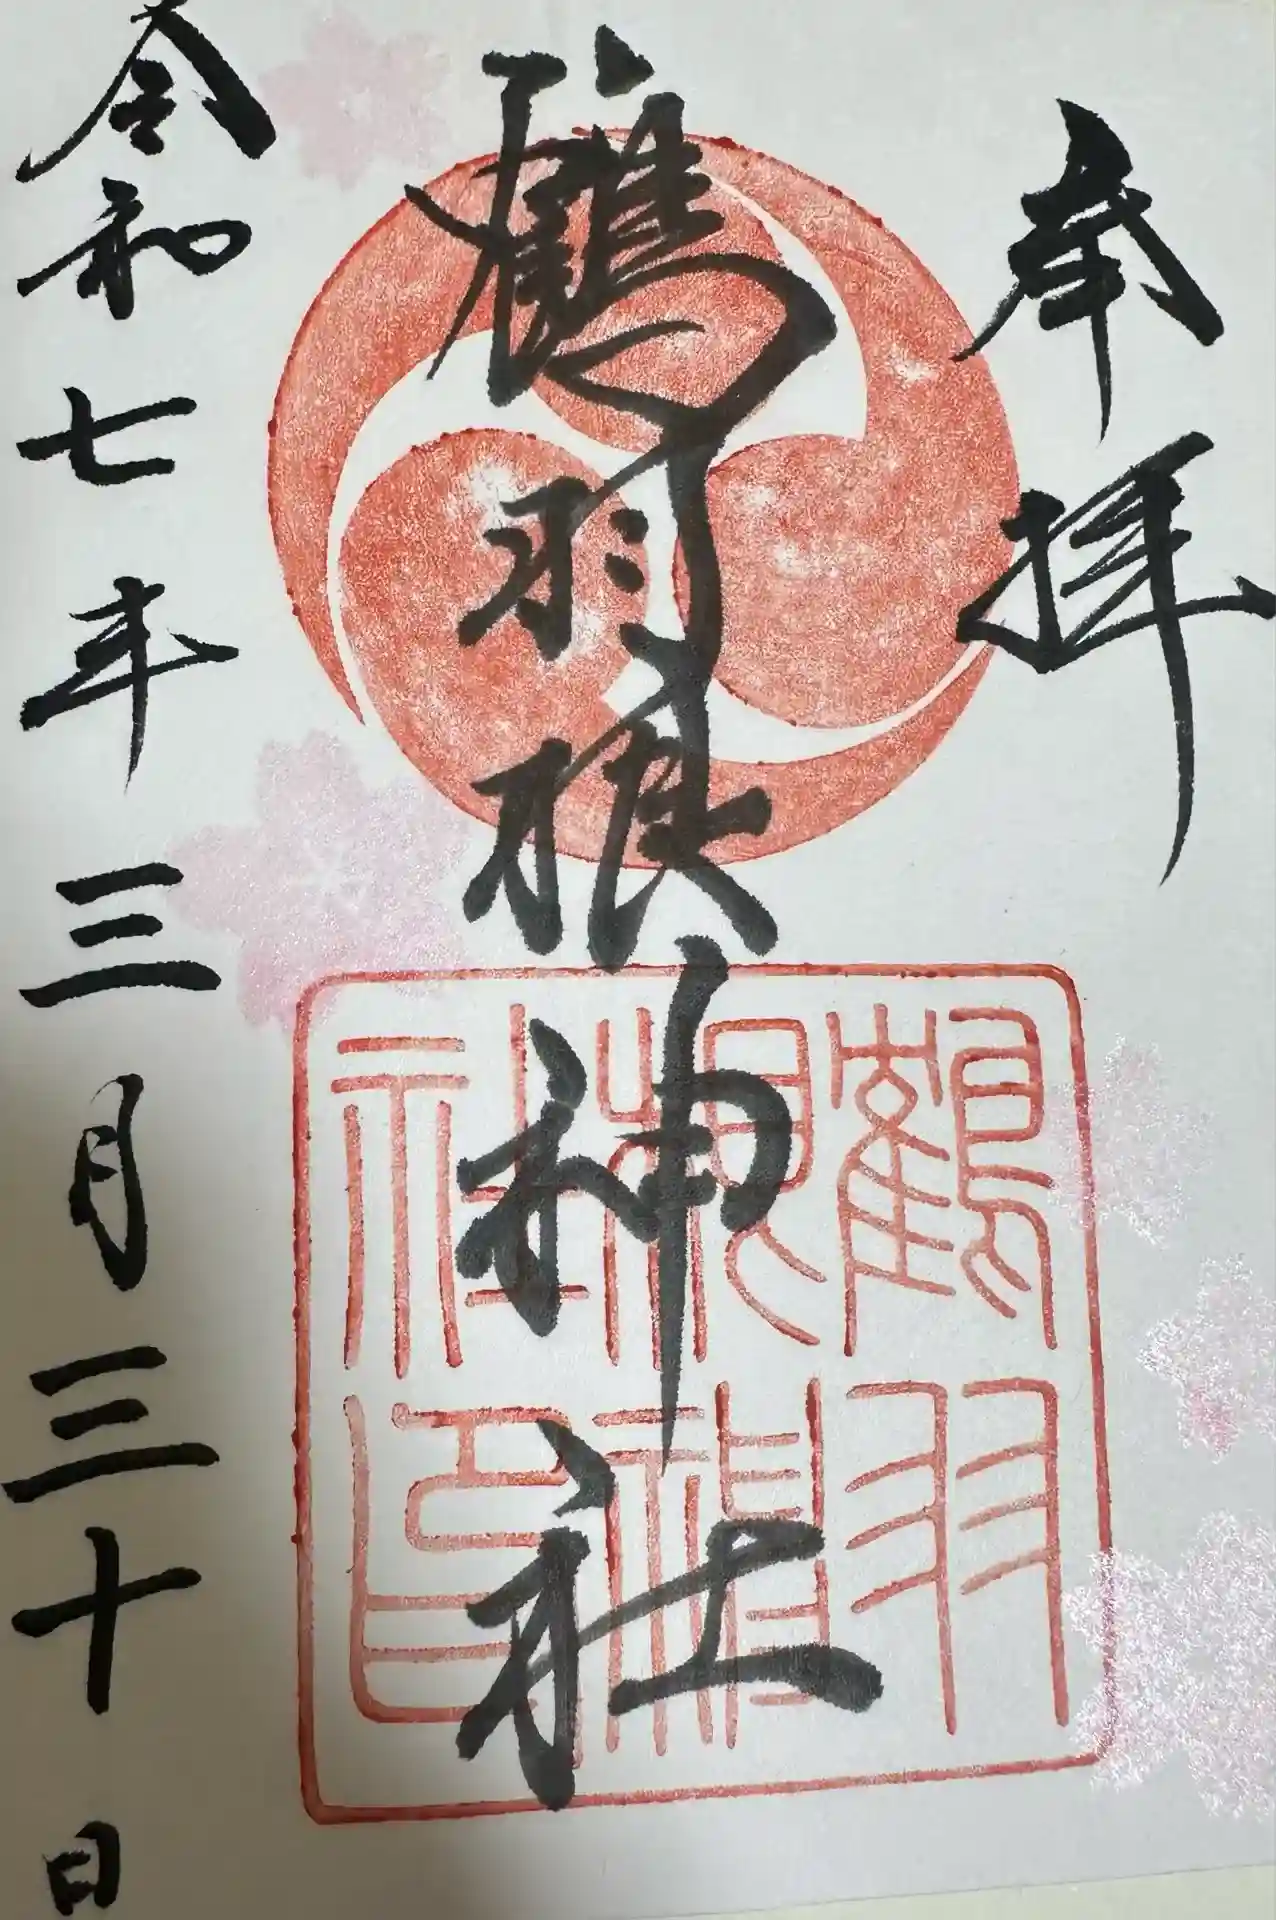 奉拝
鶴羽根神社
鶴羽
根神
社印
令和七年三月三十日